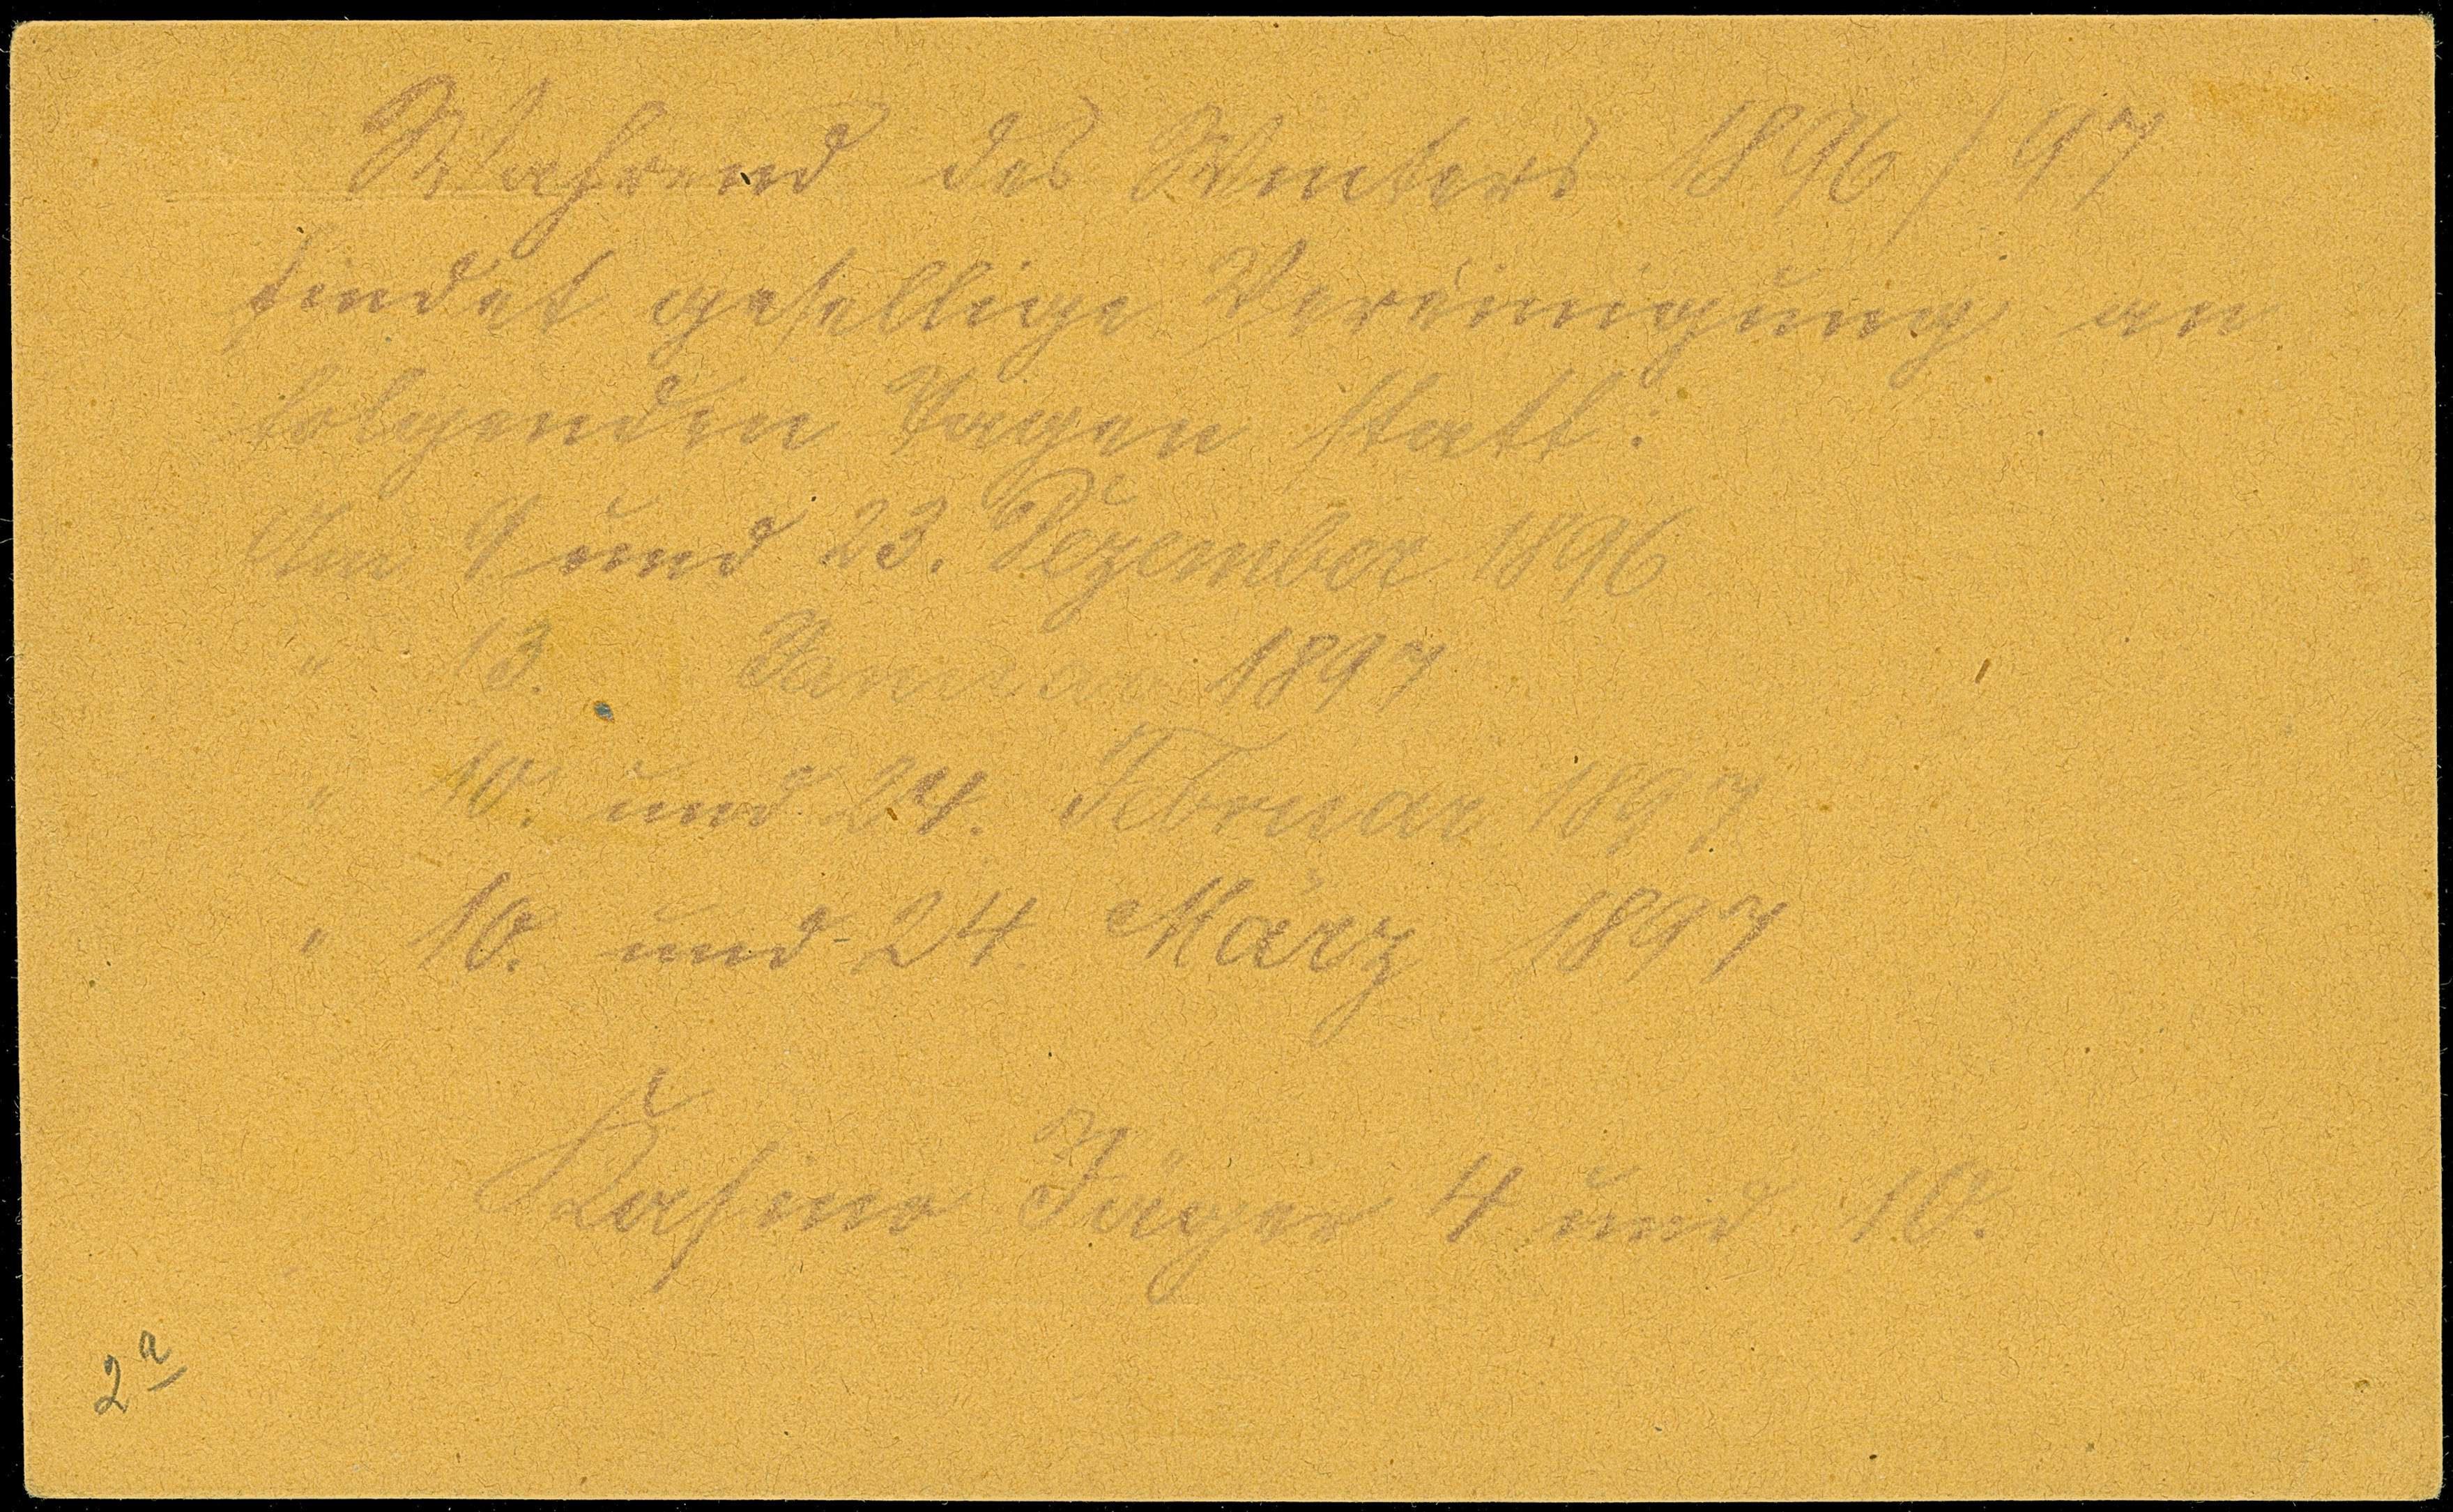 Während des Winters 1896/97
findet gesellige Vereinigung an
folgenden Tagen statt:
Am 9. und 23. Dezember 1896
" 13. Januar 1897
" 10. und 24. Februar 1897
" 10. und 24. März 1897
Kasino Jäger 4 und 10.
2a